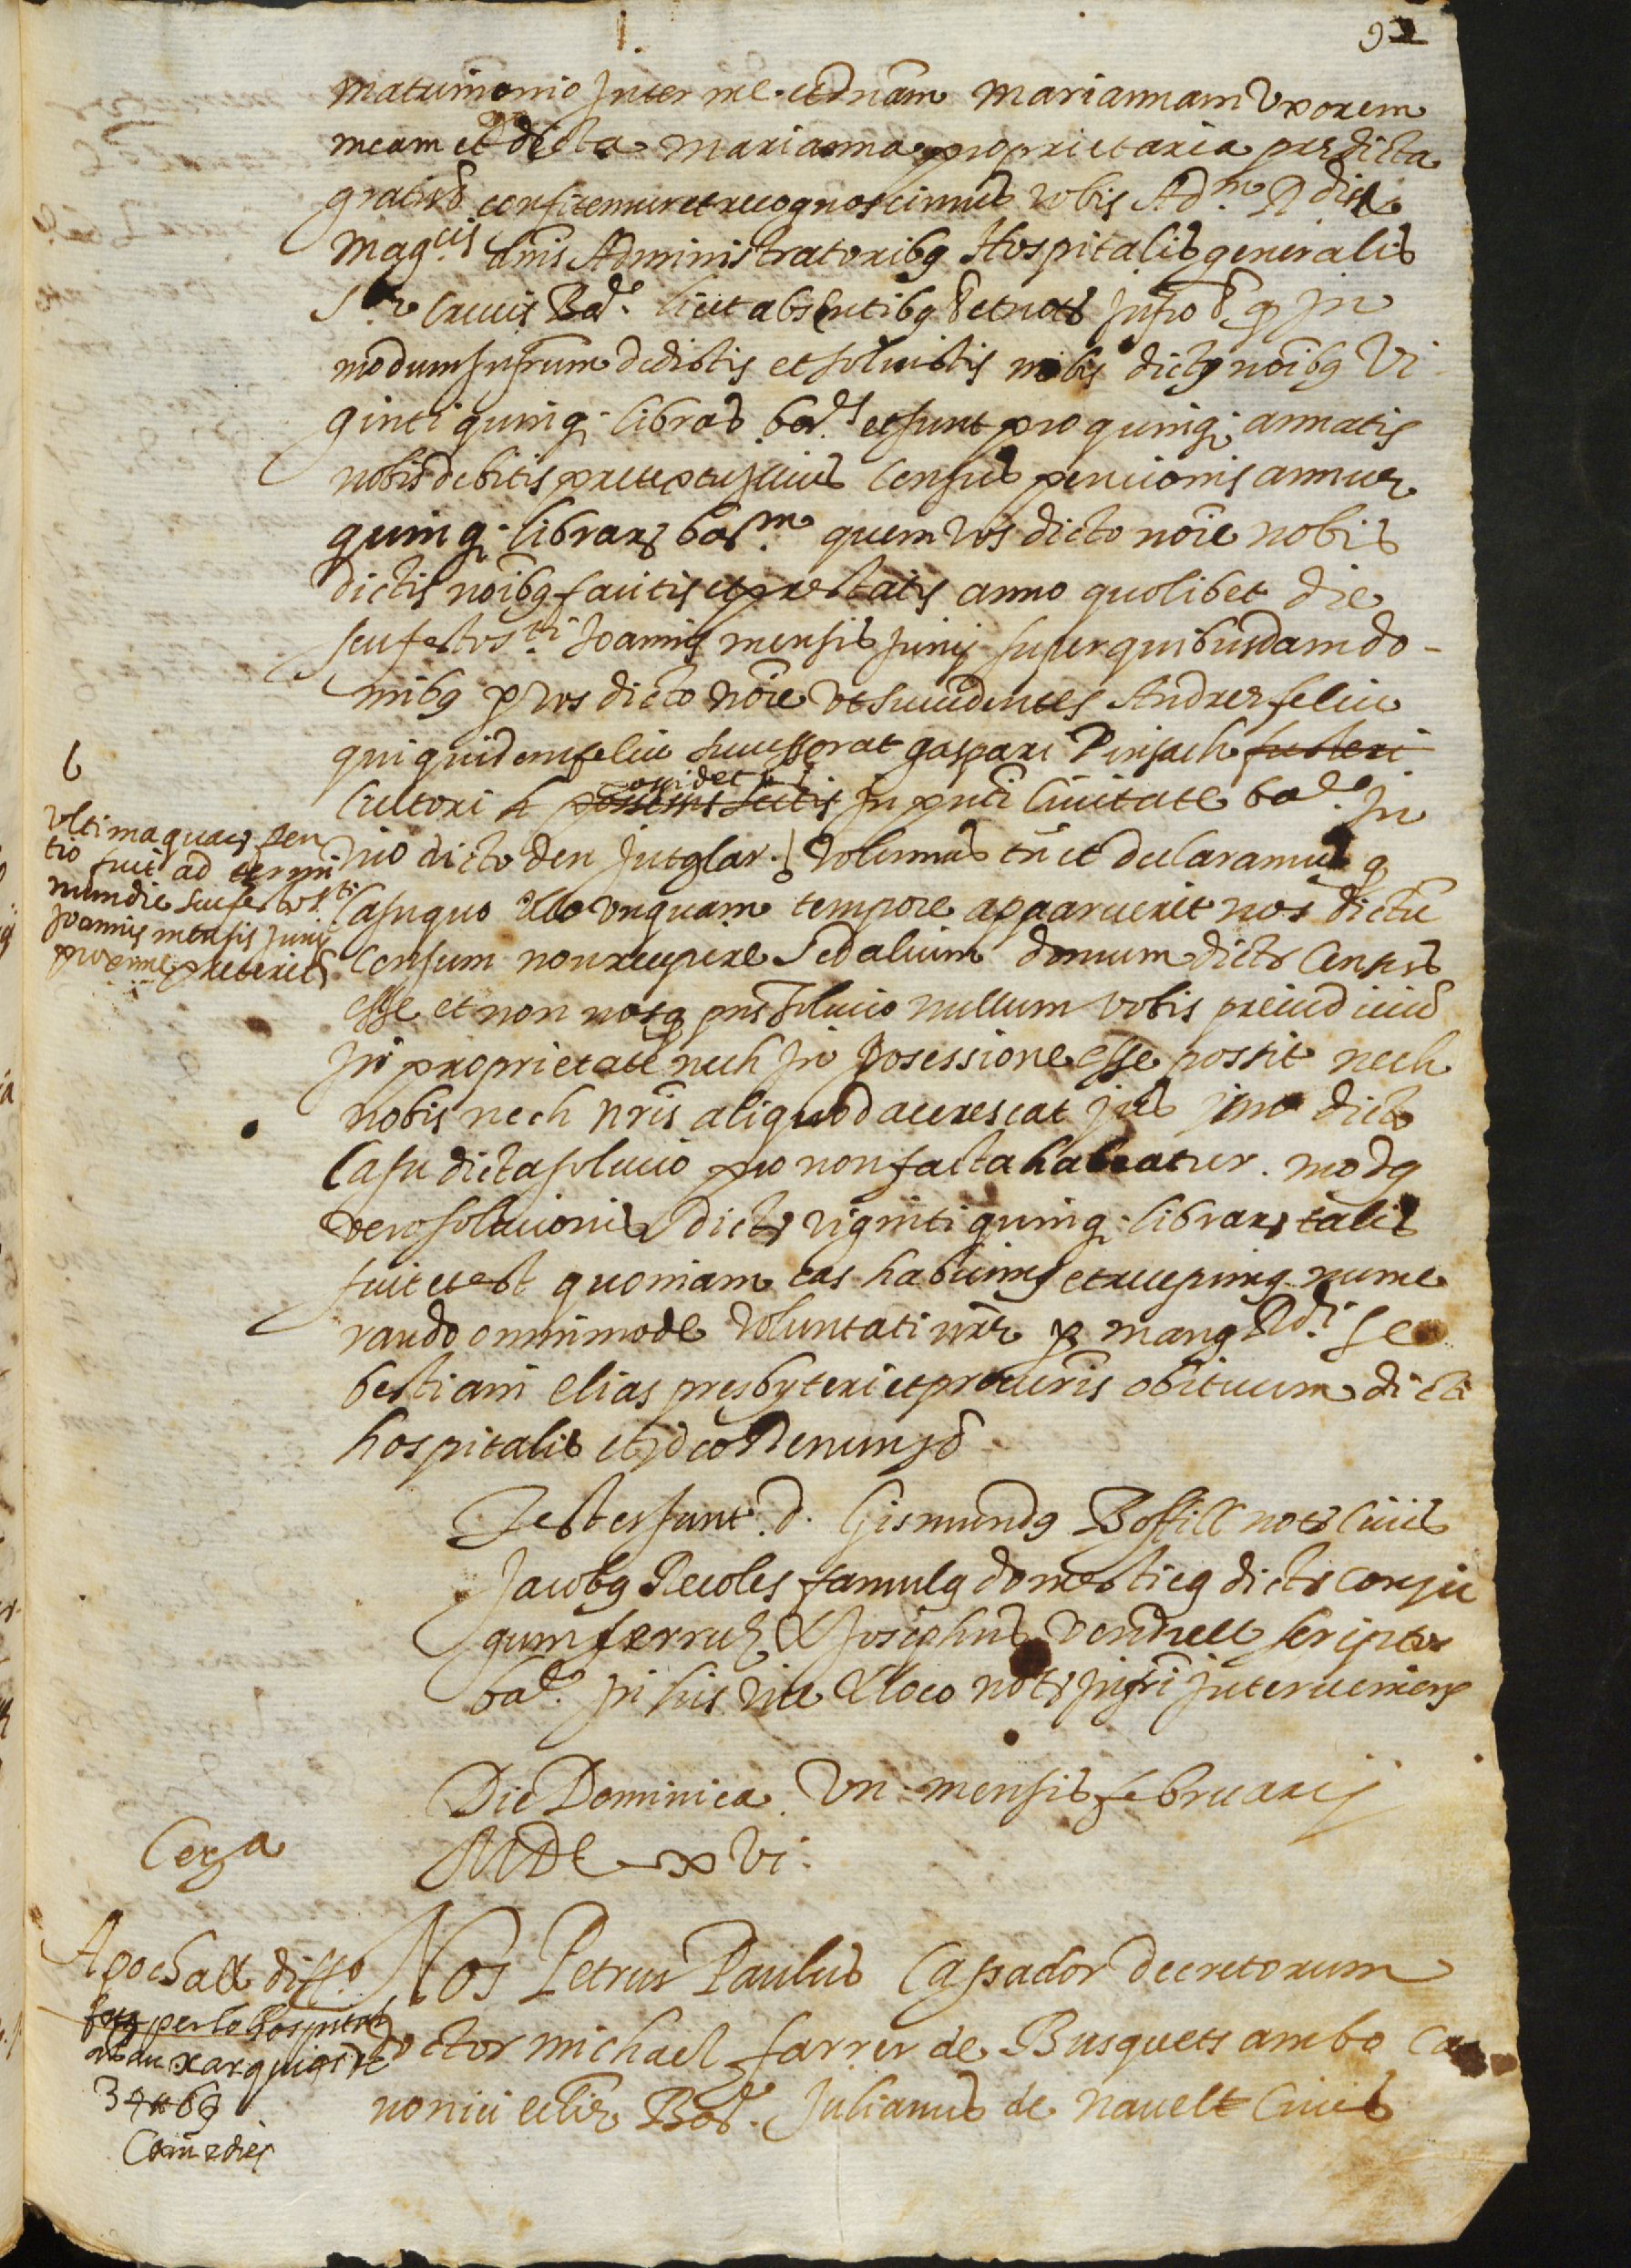 92
matrimonio inter me et dnām Mariannam Uxorem
meam et dicta Marianna proprietaria predicta
gratis &ᵃ confitemur et recognoscimus vobis Adᵐ Rdis et
magᶜⁱˢ dnis Administratoribꝰ Hospitalis generalis
Sᵗᵉ Crucis Baᵉ licet absentibꝰ et notᵒ infro &ᵃ q in
modum infrum dedistis et solvistis nobis dictꝭ noibꝰ vi
ginti quinqꝫ libras baᵉˢ et sunt pro quinqꝫ annatis
nobis debitis pretextu illius census pencionis annuæ
quinqꝫ librarꝫ baᵐ quem vos dicto noīe nobis
dictis noibꝰ facitis et prestatis anno quolibet die
seu festo Sᵗⁱ Joannis mensis Junij super quibusdam do-
mibꝰ ꝑ vos dicto noīe ut succedentes Andreæ feliu
qui quidem feliu successerat gaspari Pinsach fusteri
ossidet
Cultori h possessis sitis in pnti Civitate baᵉ in
vio dicto den Jutglar. Volumus tn̄ et declaramus q
Casu quo ullo unquam tempore apparuerit nos dictū
Censum non recipere sed alium domum dicti Census
esse et non nos q pns solucio nullum vobis preiudiciū
in proprietate nech in possessione esse possit nech
nobis nech nris aliquod accrescat jus imo dicto
Casu dicta solucio pro non facta habeatur. modꝰ
vero solucionis dictꝭ viginti quinqꝫ librarꝫ talis
fuit et est quoniam eas habuimꝰ et recepimꝰ nume
rando omnimode voluntati nræ ꝑ manꝰ Rdi Se
bestiani Elias presbyteri et procuris obituum dicti
hospitalis et ideo Renun &ᵃ
Testes sunt d. Gismundꝰ Boffill notᵒ Civis
Jacobꝰ Recoles famulꝰ domesticꝰ dictꝭ Conju
gum ferruz & Josephus Vendrell scriptor
baᵉ in his vice & loco notⁱ infri interveniens
Die Dominica Vii mensis februarij
MDCxVi.
Nos Petrus Paulus Cassador decretorum
doctor michael farrer de Busquets ambo Ca
nonici eccliæ Baᵉ Julianus de Navell Civis
6
Ultima quarꝫ pen
tio fuit ad termi
num diei seu festo Sᵗⁱ
Joannis mensis Junij
proxime preteriti
Cerꝫa
Apocha & diffᵒ
per lo hospital